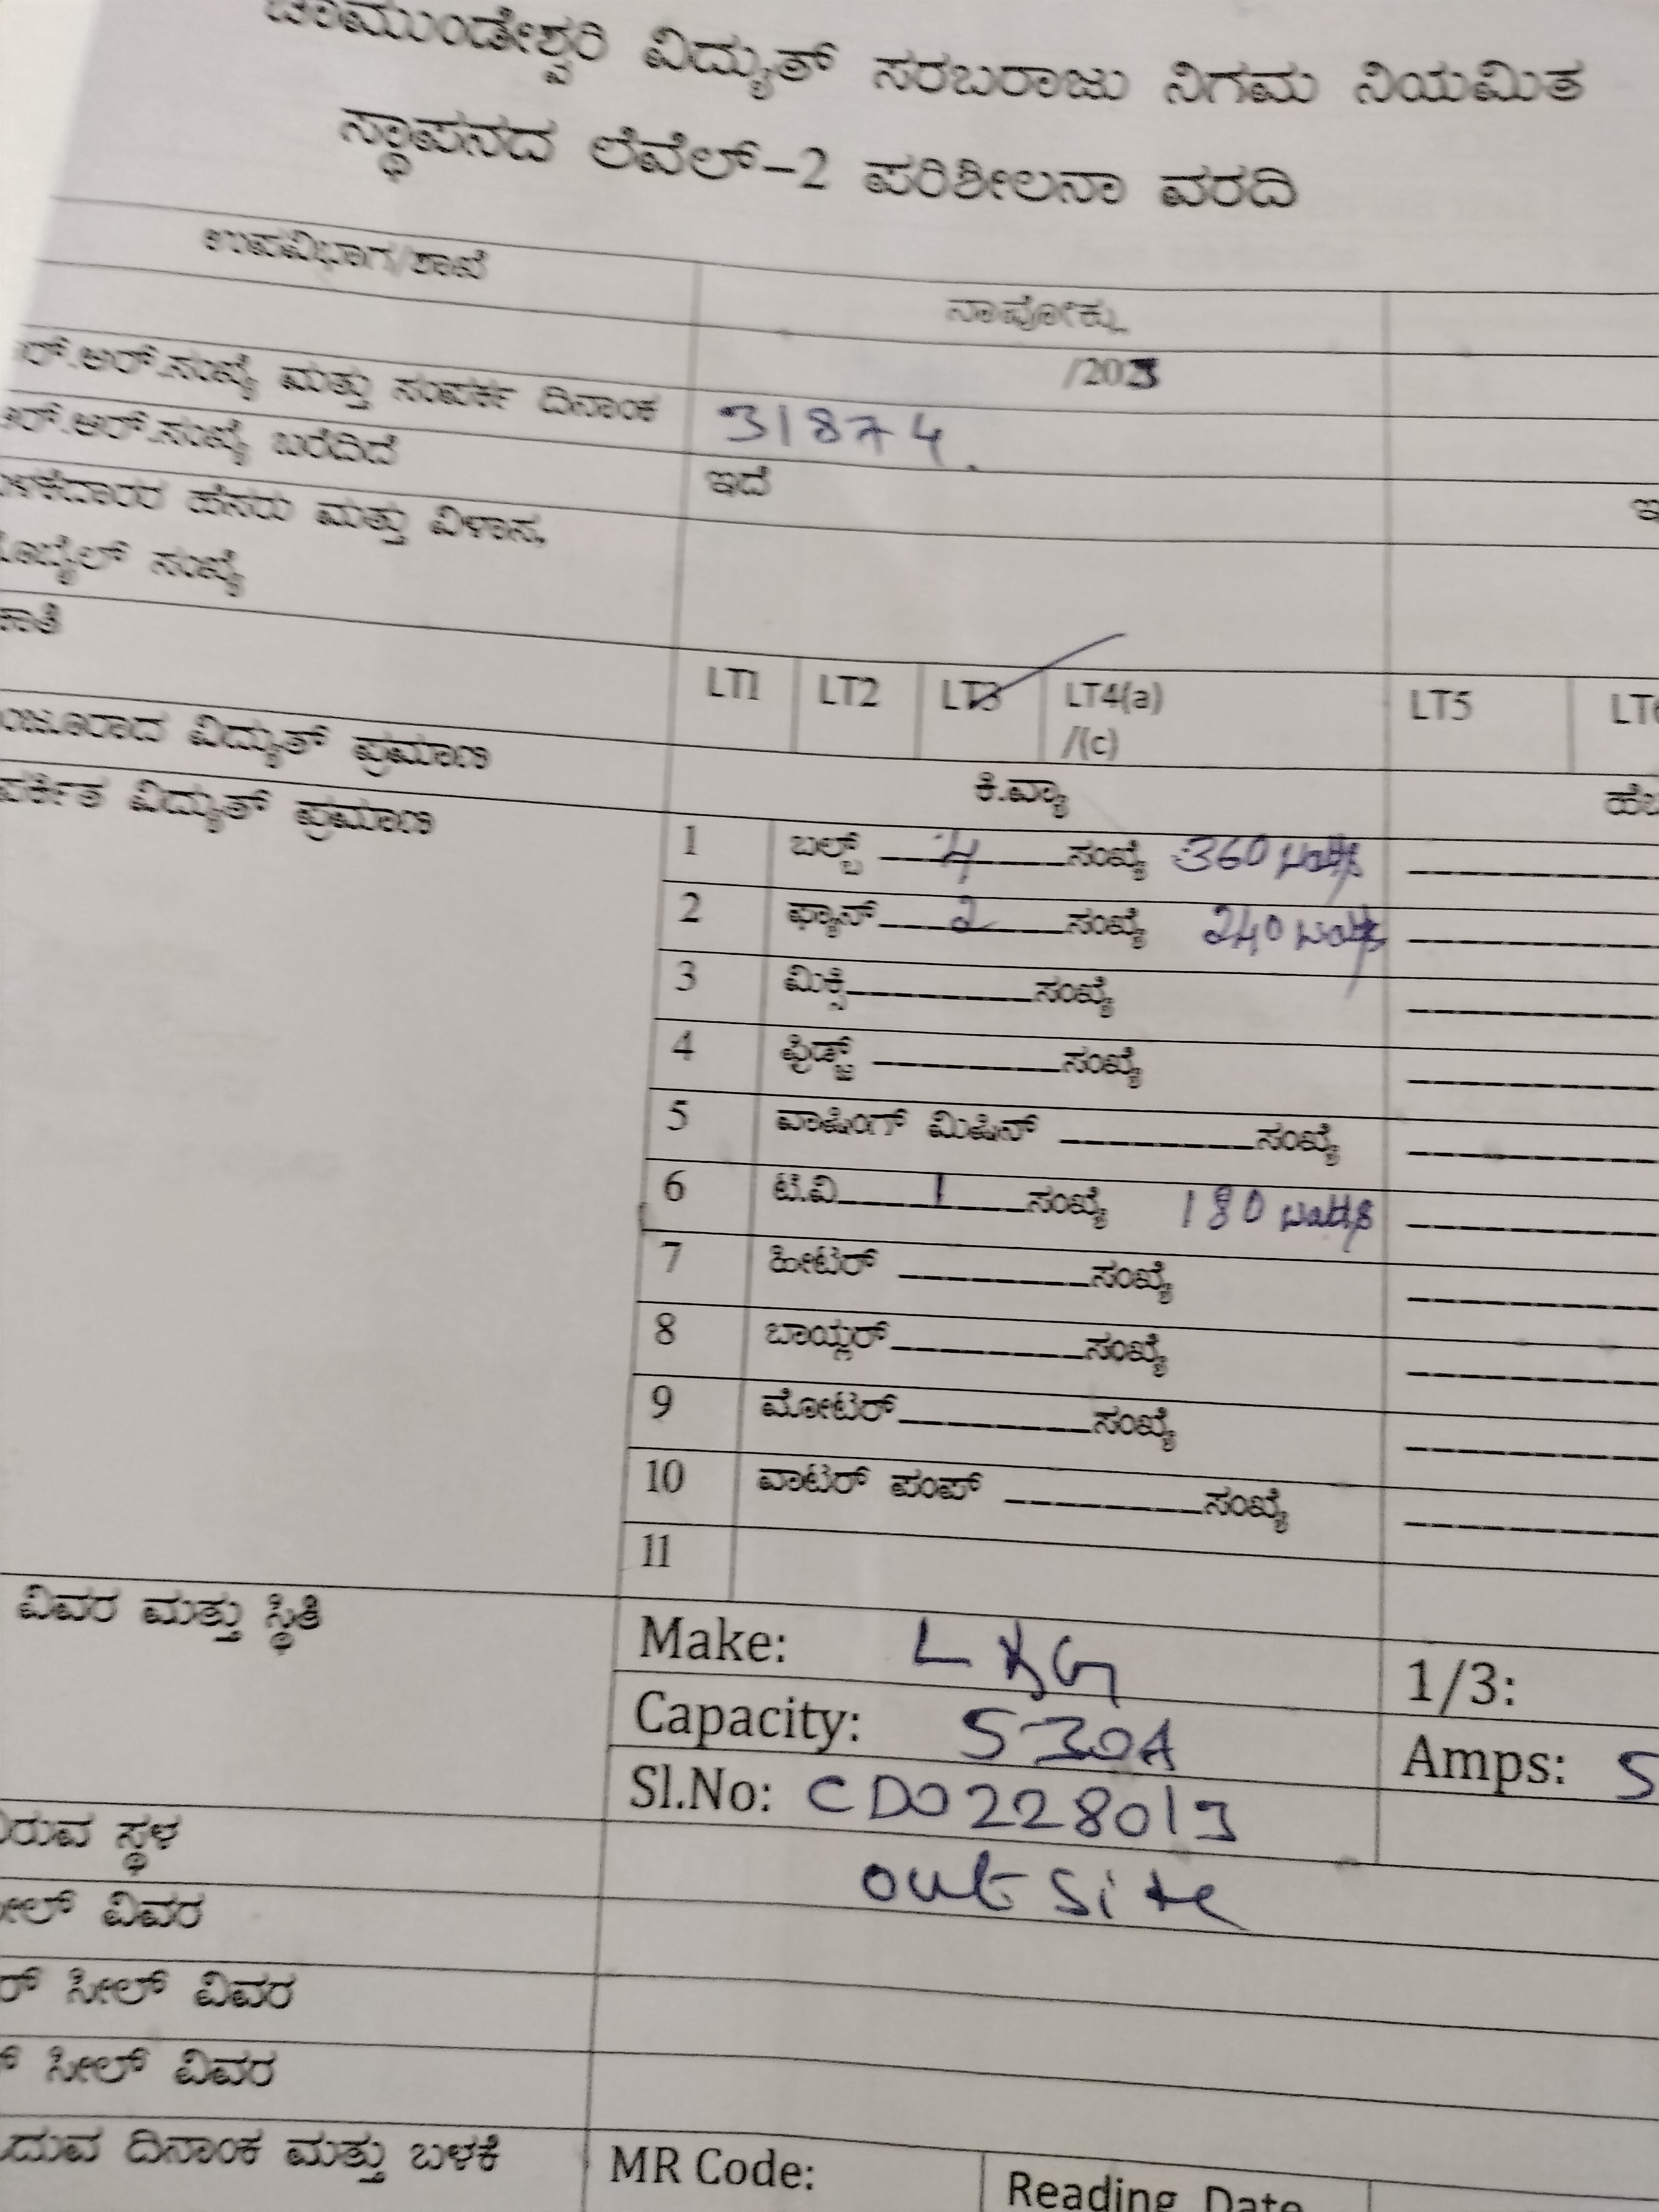 ಚಾಮುಂಡೇಶ್ವರಿ ವಿದ್ಯುತ್ ಸರಬರಾಜು ನಿಗಮ ನಿಯಮಿತ
ಸ್ಥಾಪನದ ಲೆವೆಲ್-2 ಪರಿಶೀಲನಾ ವರದಿ
ಉಪವಿಭಾಗ/ಶಾಖೆ ನಾಪೋಕ್ಲು
/2023
ರ್.ಆರ್.ಸಂಖ್ಯೆ ಮತ್ತು ಸಂಪರ್ಕ ದಿನಾಂಕ 31874.
ಆರ್.ಆರ್.ಸಂಖ್ಯೆ ಬರೆದಿದೆ ಇದೆ
ಳಕೆದಾರರ ಹೆಸರು ಮತ್ತು ವಿಳಾಸ,
ಮೊಬೈಲ್ ಸಂಖ್ಯೆ
ಕಾತಿ LT1 LT2 LT3 LT4(a) LT5
/(c)
ಂಜೂರಾದ ವಿದ್ಯುತ್ ಪ್ರಮಾಣ ಕಿ.ವ್ಯಾ
ಪರ್ಕಿತ ವಿದ್ಯುತ್ ಪ್ರಮಾಣ 1 ಬಲ್ಬ್ 4 ಸಂಖ್ಯೆ 360 watts
2 ಫ್ಯಾನ್ 2 ಸಂಖ್ಯೆ 240 watts
3 ಮಿಕ್ಸಿ ಸಂಖ್ಯೆ
4 ಫ್ರಿಡ್ಜ್ ಸಂಖ್ಯೆ
5 ವಾಷಿಂಗ್ ಮಿಷಿನ್ ಸಂಖ್ಯೆ
6 ಟಿ.ವಿ 1 ಸಂಖ್ಯೆ 180 watts
7 ಹೀಟರ್ ಸಂಖ್ಯೆ
8 ಬಾಯ್ಲರ್ ಸಂಖ್ಯೆ
9 ಮೋಟರ್ ಸಂಖ್ಯೆ
10 ವಾಟರ್ ಪಂಪ್ ಸಂಖ್ಯೆ
11
ವಿವರ ಮತ್ತು ಸ್ಥಿತಿ Make: L&G 1/3:
Capacity: 530A Amps: 5
Sl.No: CD0228019
ರುವ ಸ್ಥಳ out site
ೀಲ್ ವಿವರ
ರ್ ಸೀಲ್ ವಿವರ
ಸೀಲ್ ವಿವರ
ದುವ ದಿನಾಂಕ ಮತ್ತು ಬಳಕೆ MR Code: Reading Date